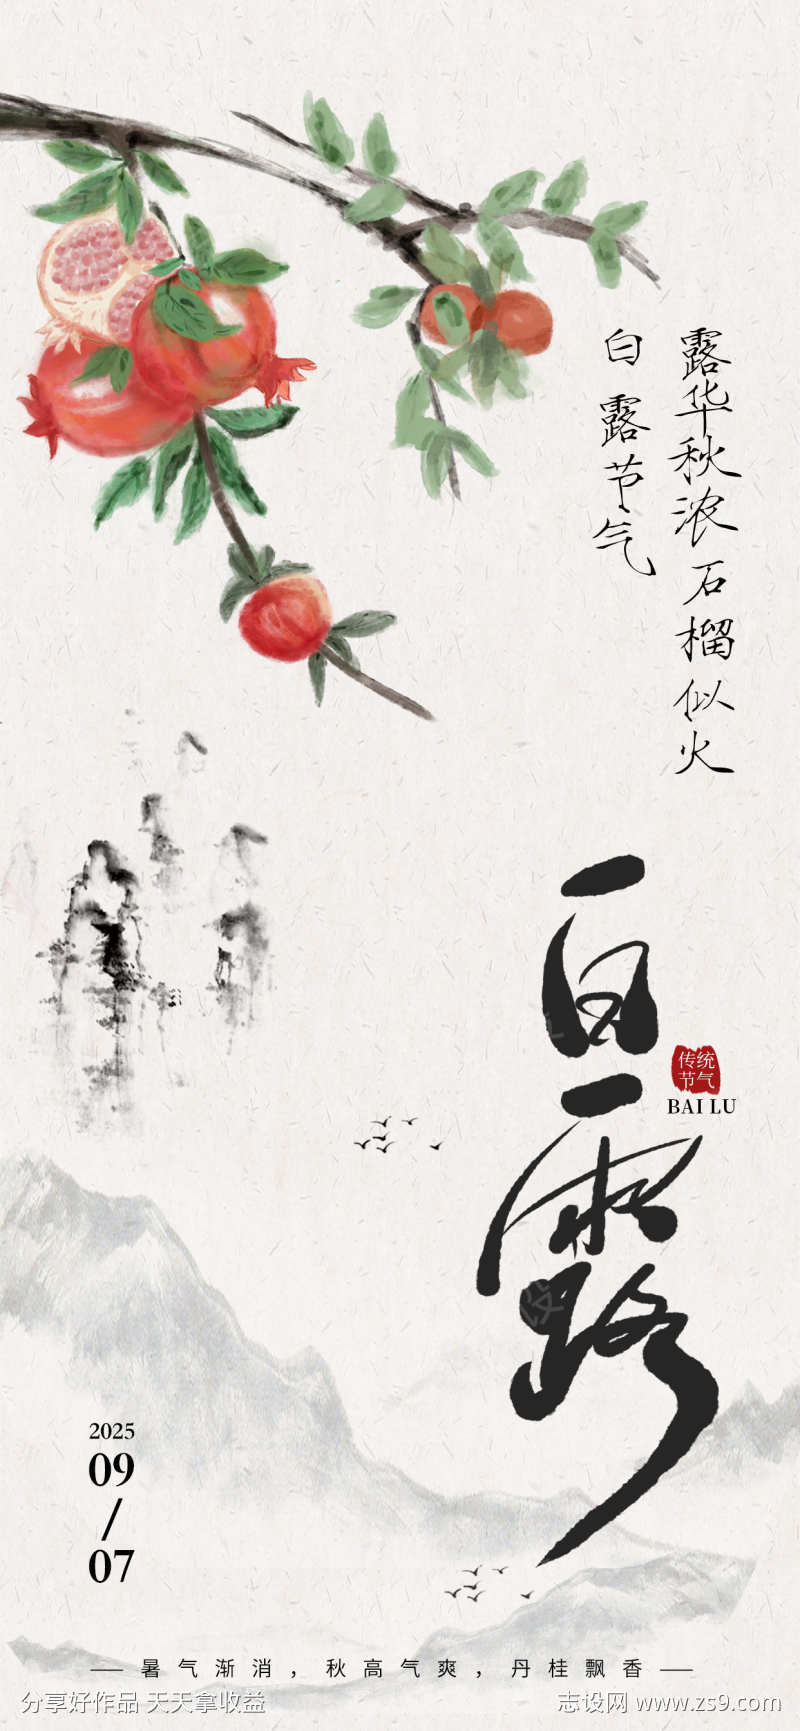 露华秋浓石榴似火
白露节气
白露
传统
节气
BAI LU
2025
09
/
07
暑气渐消，秋高气爽，丹桂飘香
分享好作品 天天拿收益
志设网 www.zs9.com